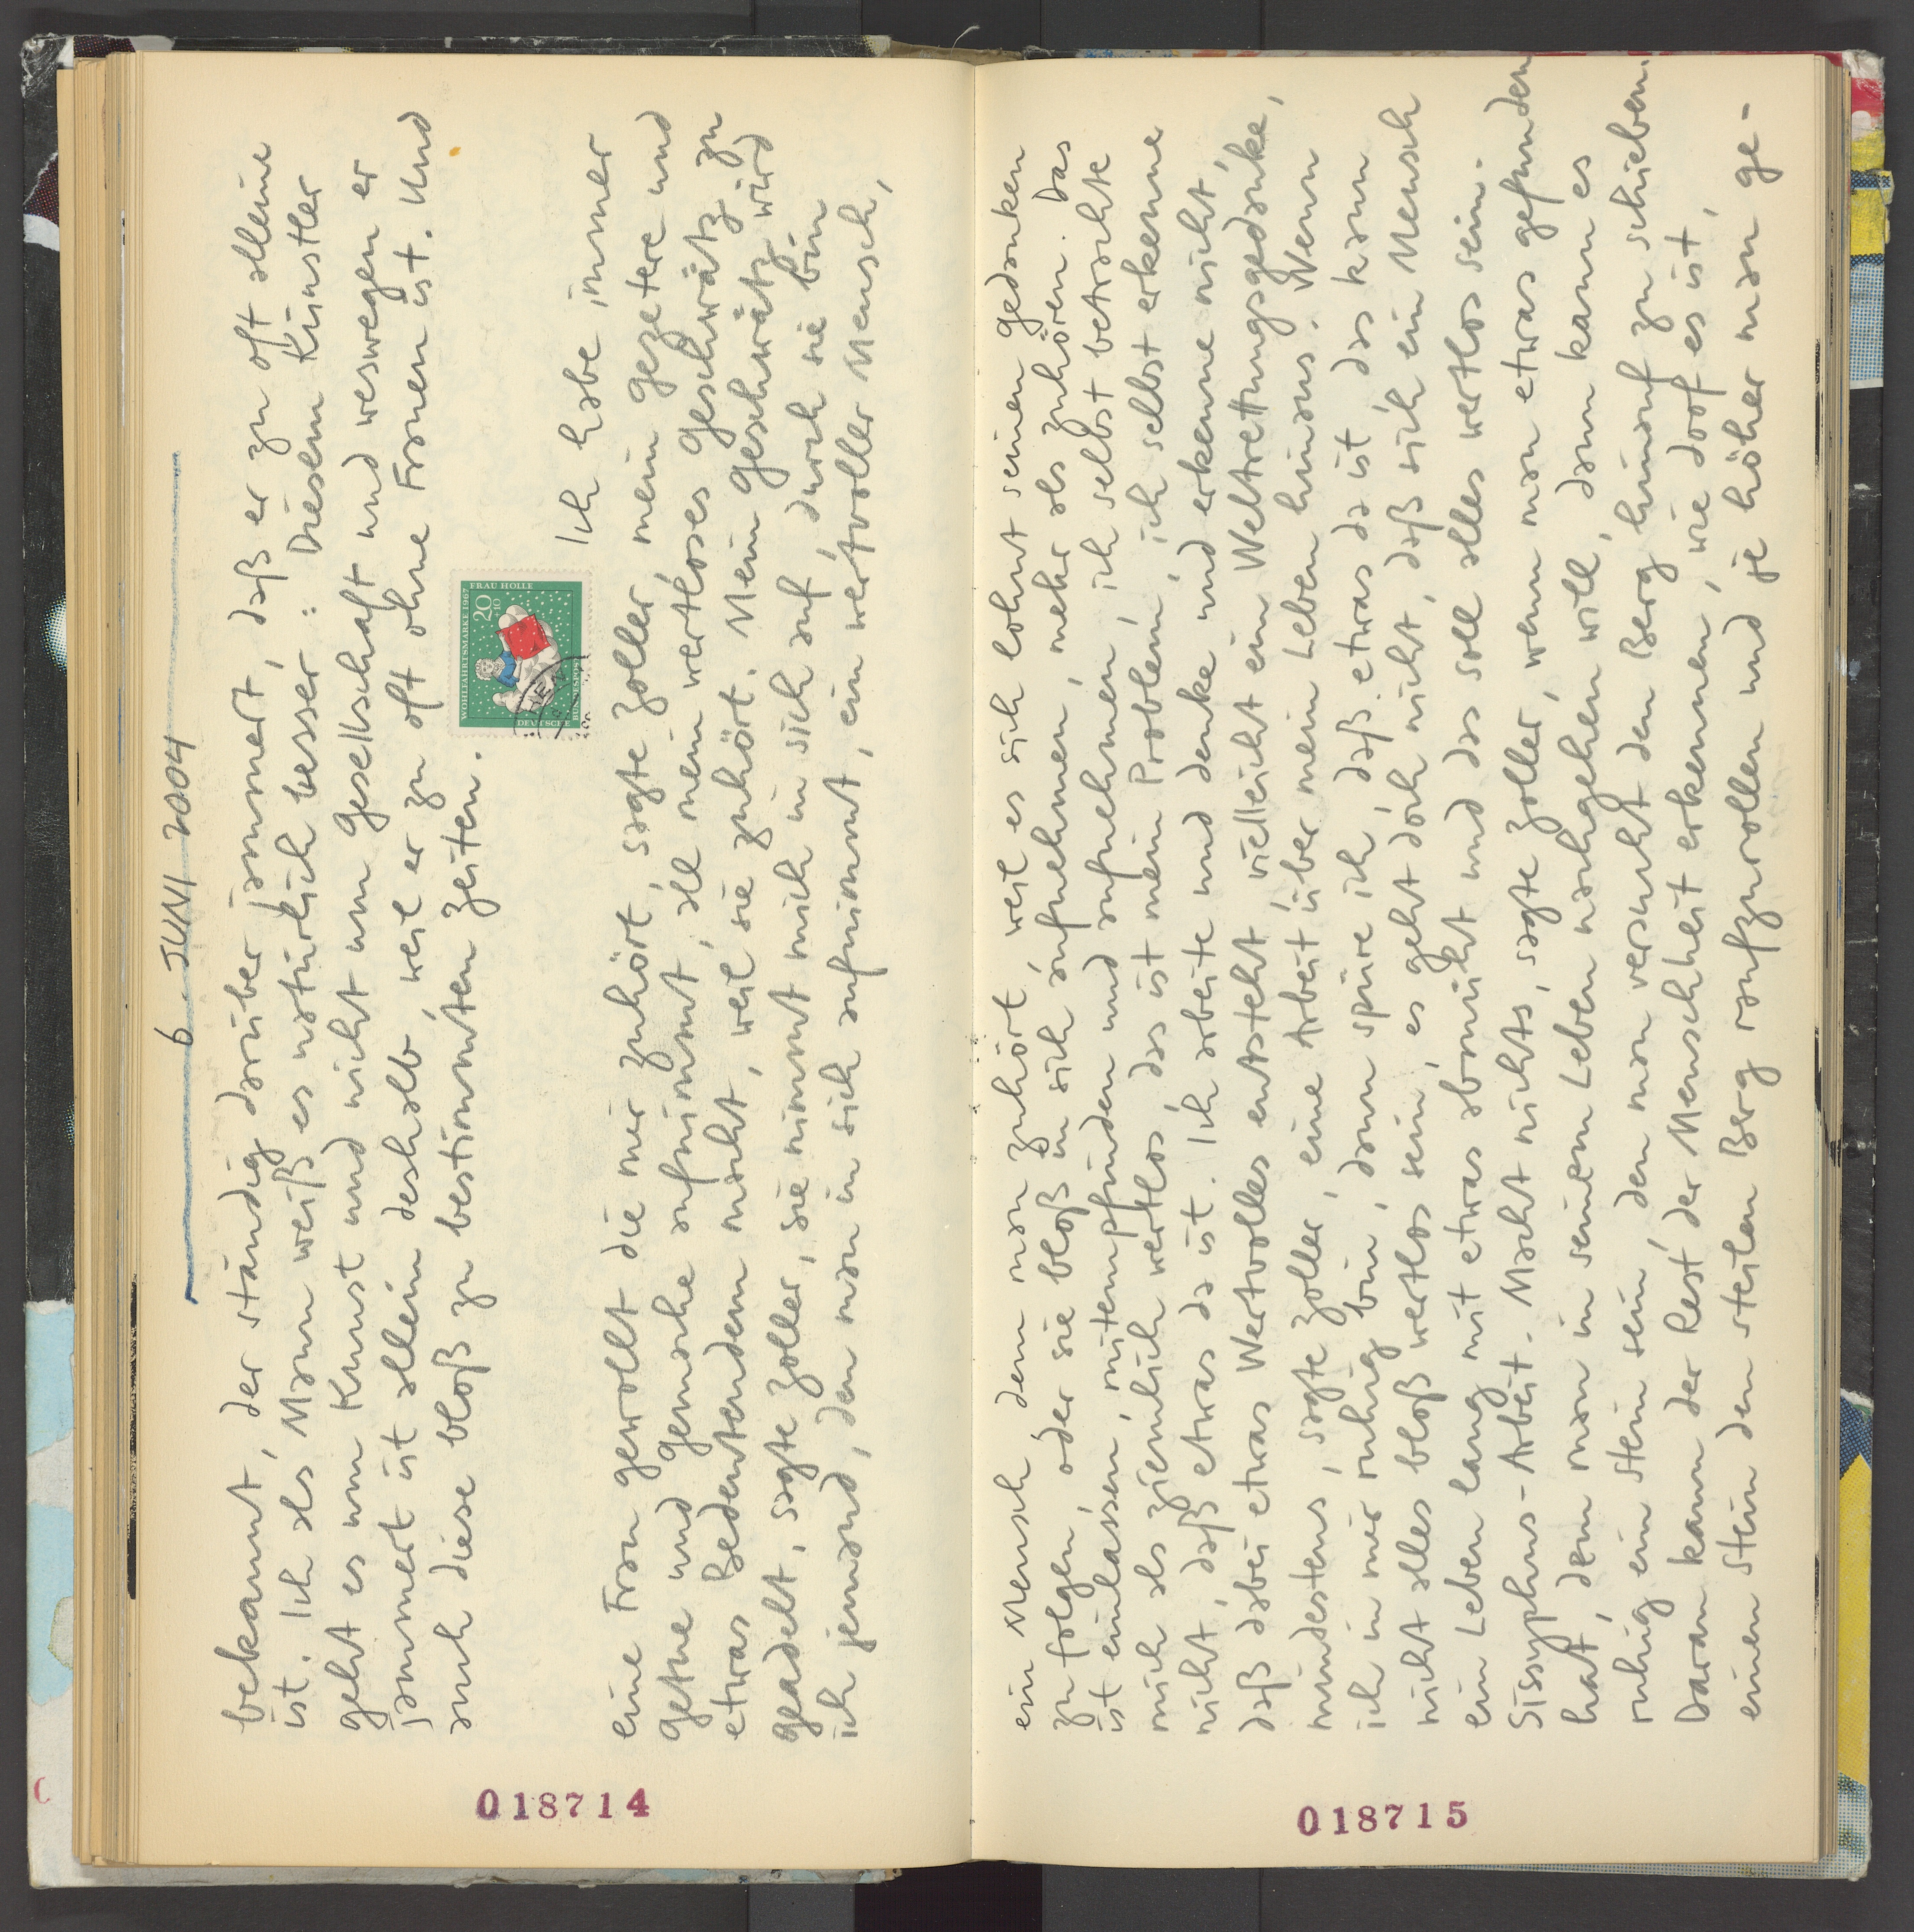 6. JUNI 2004
bekannt, der ständig darüber jammert, daß er zu oft alleine
ist. Ich als Mann weiß es natürlich besser: Diesem Künstler
geht es um Kunst und nicht um Gesellschaft und weswegen er
jammert ist allein deshalb, weil er zu oft ohne Frauen ist. Und
auch diese bloß zu bestimmten Zeiten.
WOHLFAHRTSMARKE 1967
FRAU HOLLE
20
+10
DEUTSCHE
BUNDESPOST
Ich habe immer
eine Frau gewollt die mir zuhört, sagte Zoller, mein Gezetere und
Getue und Gemache aufnimmt, all mein wertloses Geschwätz zu
etwas Bedeutendem macht, weil sie zuhört. Mein Geschwätz wird
geadelt, sagte Zoller, sie nimmt mich in sich auf, durch sie bin
ich jemand, den man in sich aufnimmt, ein wertvoller Mensch,
018714
ein Mensch dem man zuhört, weil es sich lohnt seinen Gedanken
zu folgen, oder sie bloß in sich aufnehmen, mehr als zuhören. Das
ist einlassen, mitempfinden und aufnehmen, ich selbst betrachte
mich als ziemlich wertlos, das ist mein Problem, ich selbst erkenne
nicht, daß etwas da ist. Ich arbeite und denke und erkenne nicht,
daß dabei etwas Wertvolles entsteht, vielleicht ein Weltrettungsgedanke,
mindestens, sagte Zoller, eine Arbeit über mein Leben hinaus. Wenn
ich in mir ruhig bin, dann spüre ich, daß etwas da ist, das kann
nicht alles bloß wertlos sein, es geht doch nicht, daß sich ein Mensch
ein Leben lang mit etwas abmüht und das soll alles wertlos sein.
Sisyphus-Arbeit. Macht nichts, sagte Zoller, wenn man etwas gefunden
hat, dem man in seinem Leben nachgehen will, dann kann es
ruhig ein Stein sein, den man versucht den Berg hinauf zu schieben.
Daran kann der Rest der Menschheit erkennen, wie doof es ist,
einen Stein den steilen Berg raufzurollen und je höher man ge-
018715